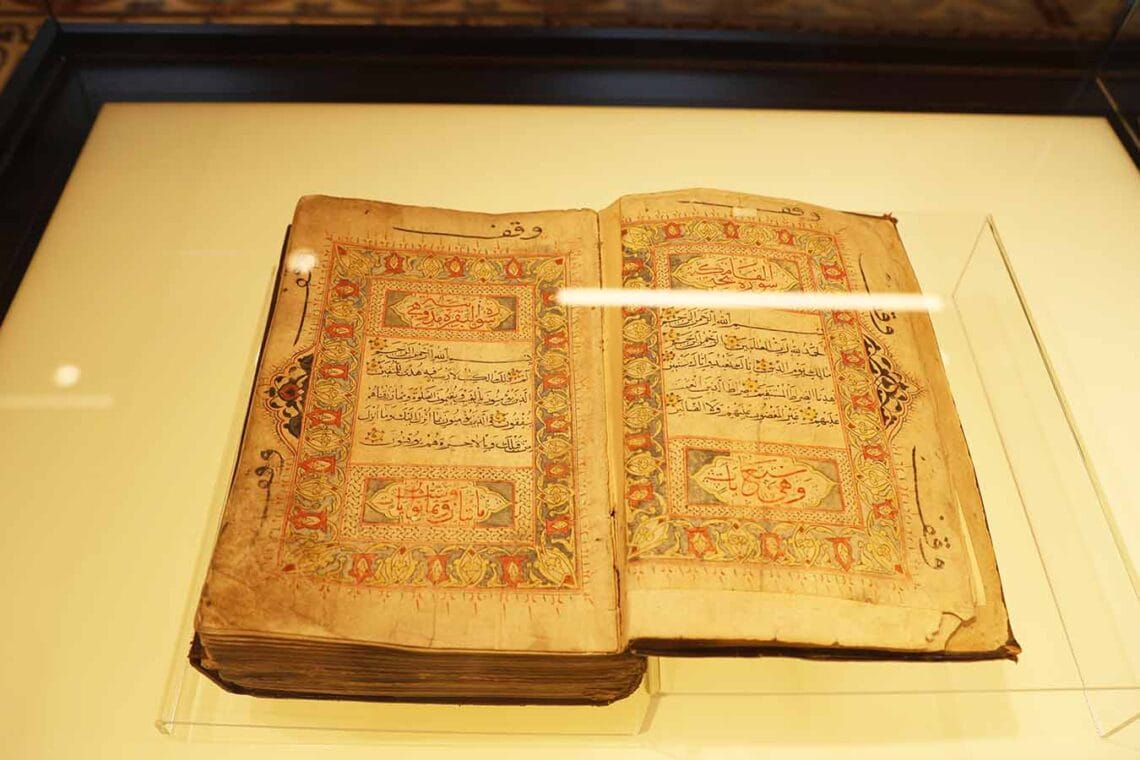 وقف
سورة الفاتحة
بسم الله الرحمن الرحيم
الحمد لله رب العالمين الرحمن الرحيم
مالك يوم الدين اياك نعبد واياك نستعين
اهدنا الصراط المستقيم صراط الذين انعمت
عليهم غير المغضوب عليهم ولا الضالين
وهي سبع ايات
وقف
وقف
وقف
سورة البقرة مدنية وهي
بسم الله الرحمن الرحيم
الم ذلك الكتاب لا ريب فيه هدى للمتقين
الذين يؤمنون بالغيب ويقيمون الصلوة ومما رزقناهم
ينفقون والذين يؤمنون بما انزل اليك وما انزل
من قبلك وبالاخرة هم يوقنون
مائتان وثمانون وست ايات
وقف
وقف